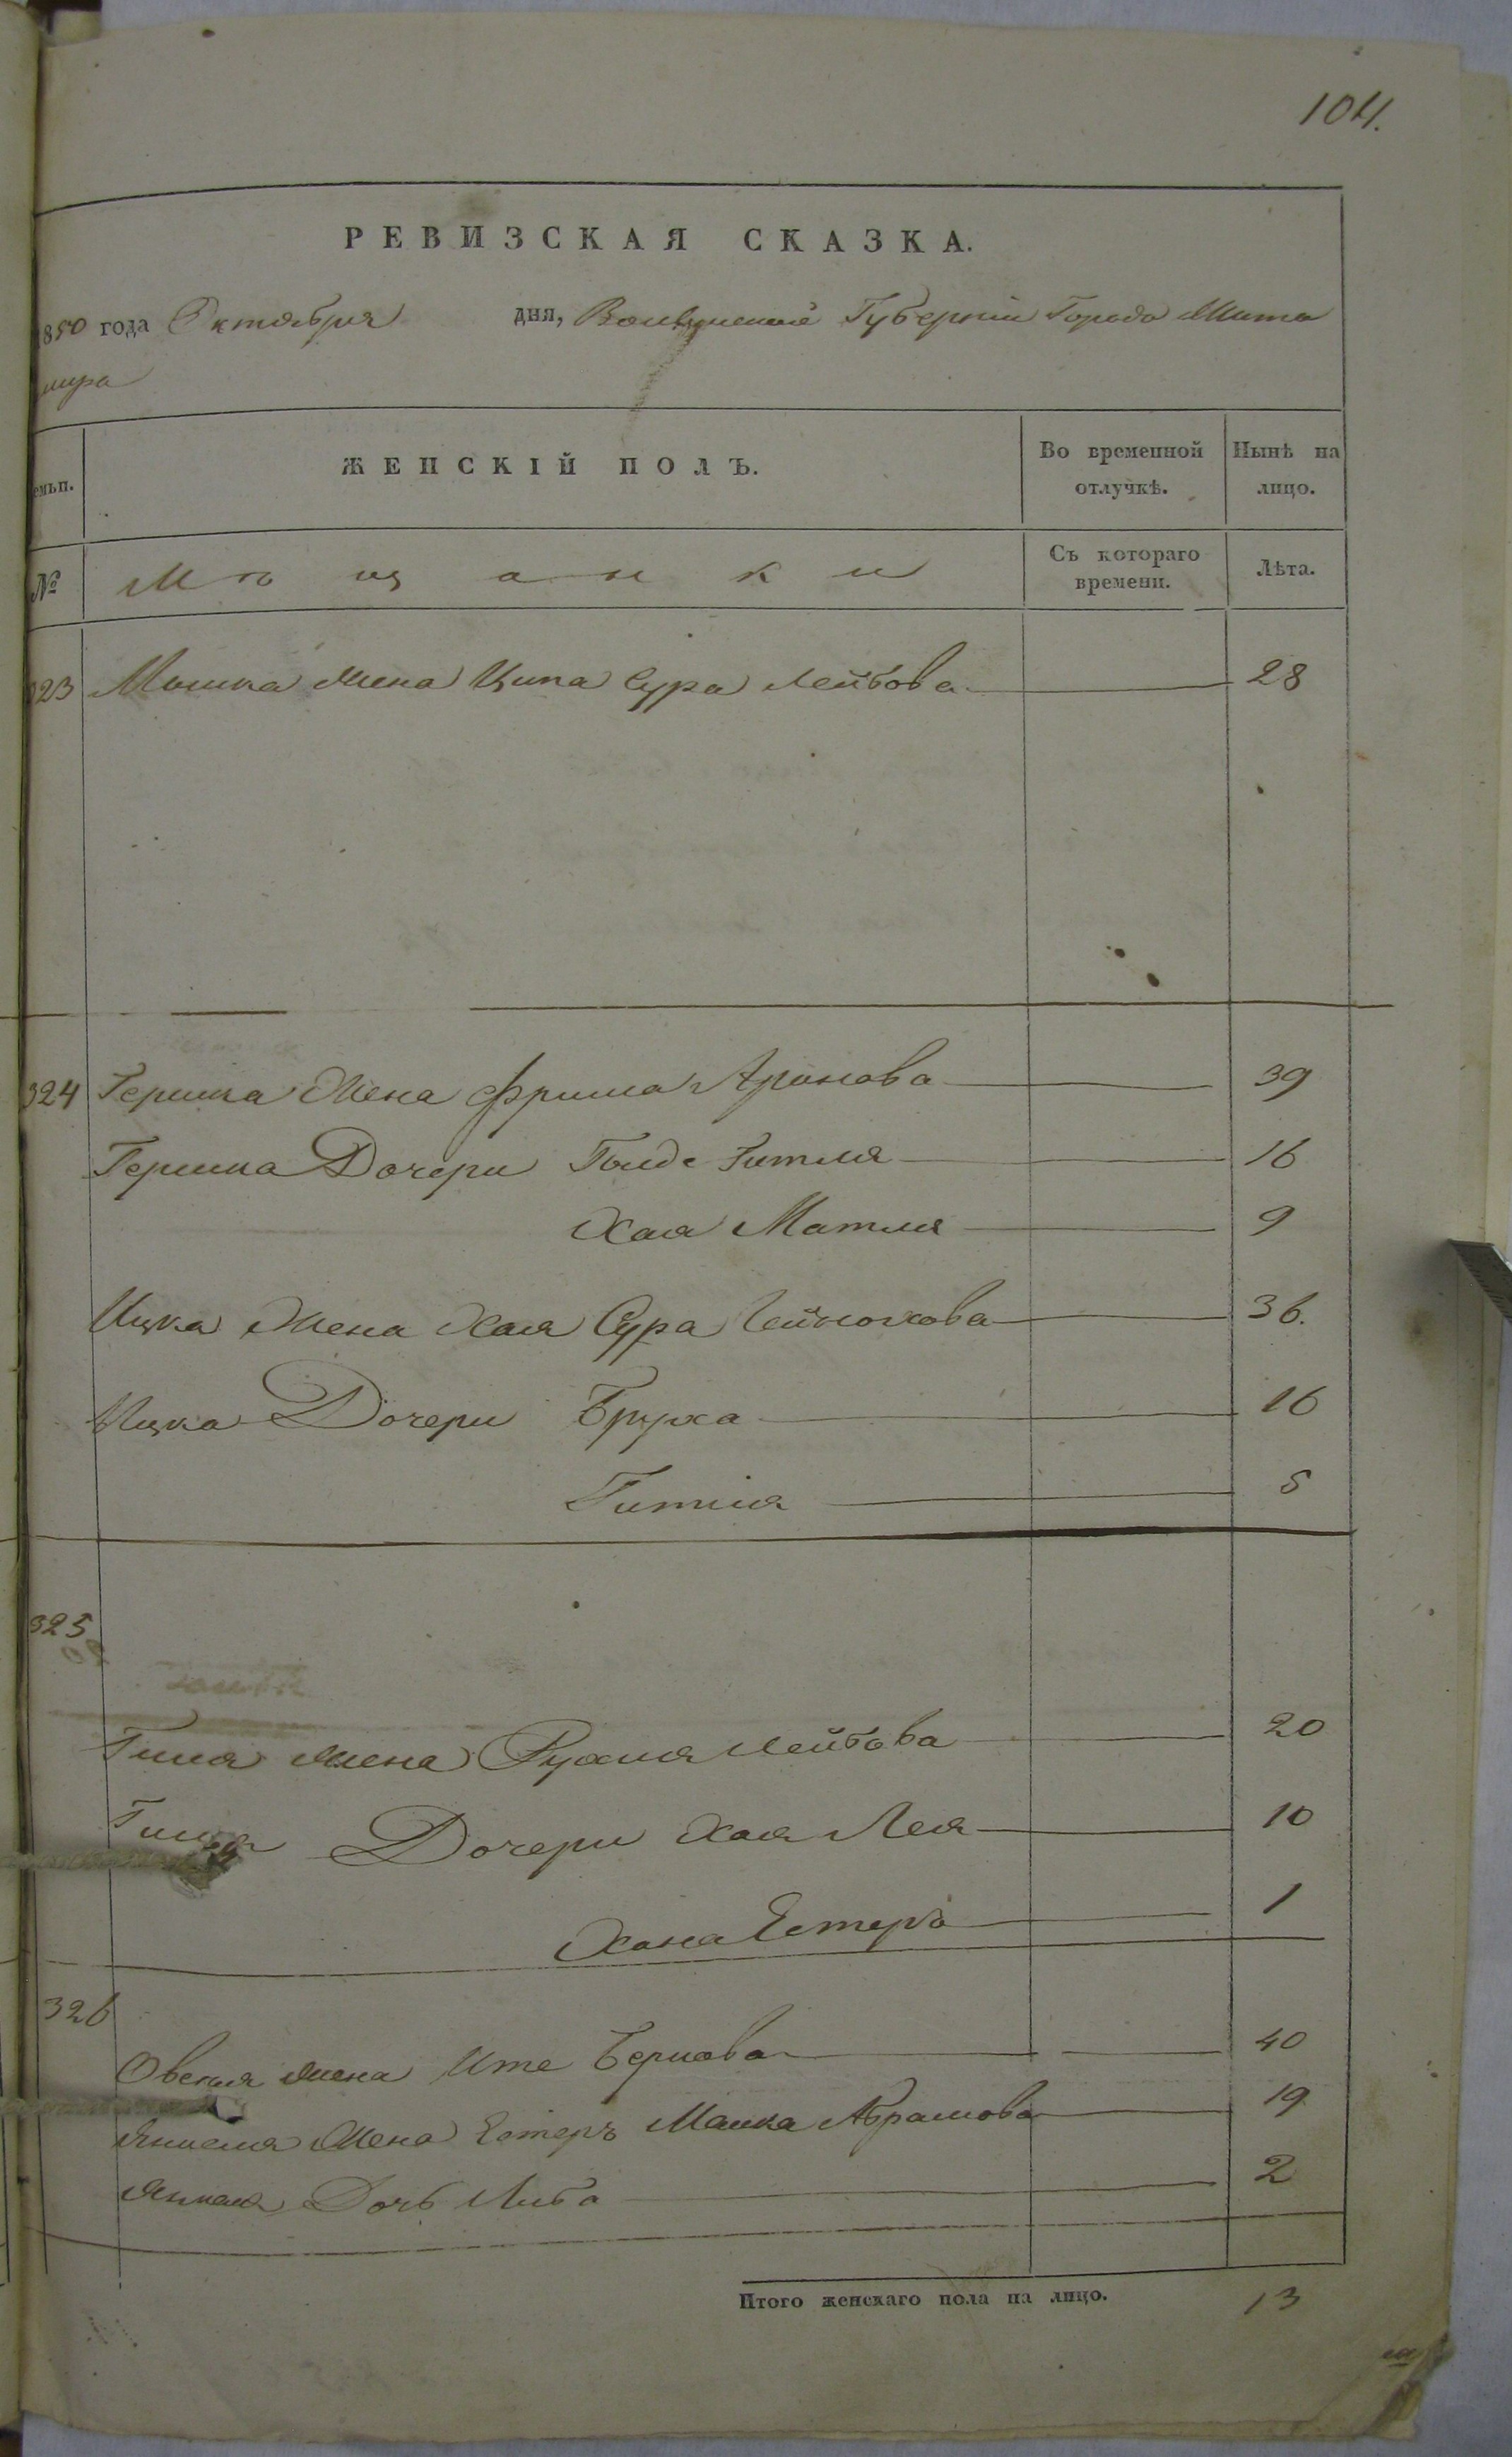 104.
РЕВИЗСКАЯ СКАЗКА.
1850 года Октября дня, Волынской Губерніи Города Жито
мира
емьи.
ЖЕНСКІЙ ПОЛЪ.
Во временной отлучкѣ.
Нынѣ на лицо.
№
Мѣщанки
Съ котораго времени.
Лѣта.
323 Мошка Жена Ципа Сура Лейбова 28
324 Гершка Жена Фрима Аронова 39
Гершка Дочери Голде Гитля 16
Хая Матля 9
Ицка Жена Хая Сура 36.
Ицка Дочери Бруха 16
Гитля 5
325
Гиля Жена Рухля Лейбова 20
Гиля Дочери Хая Лея 10
Хана Естеръ 1
326
Овсея Жена Ите Беркова 40
Янкеля Жена Естеръ Малка Абрамова 19
Янкеля Дочь Либа 2
Итого женскаго пола на лицо. 13